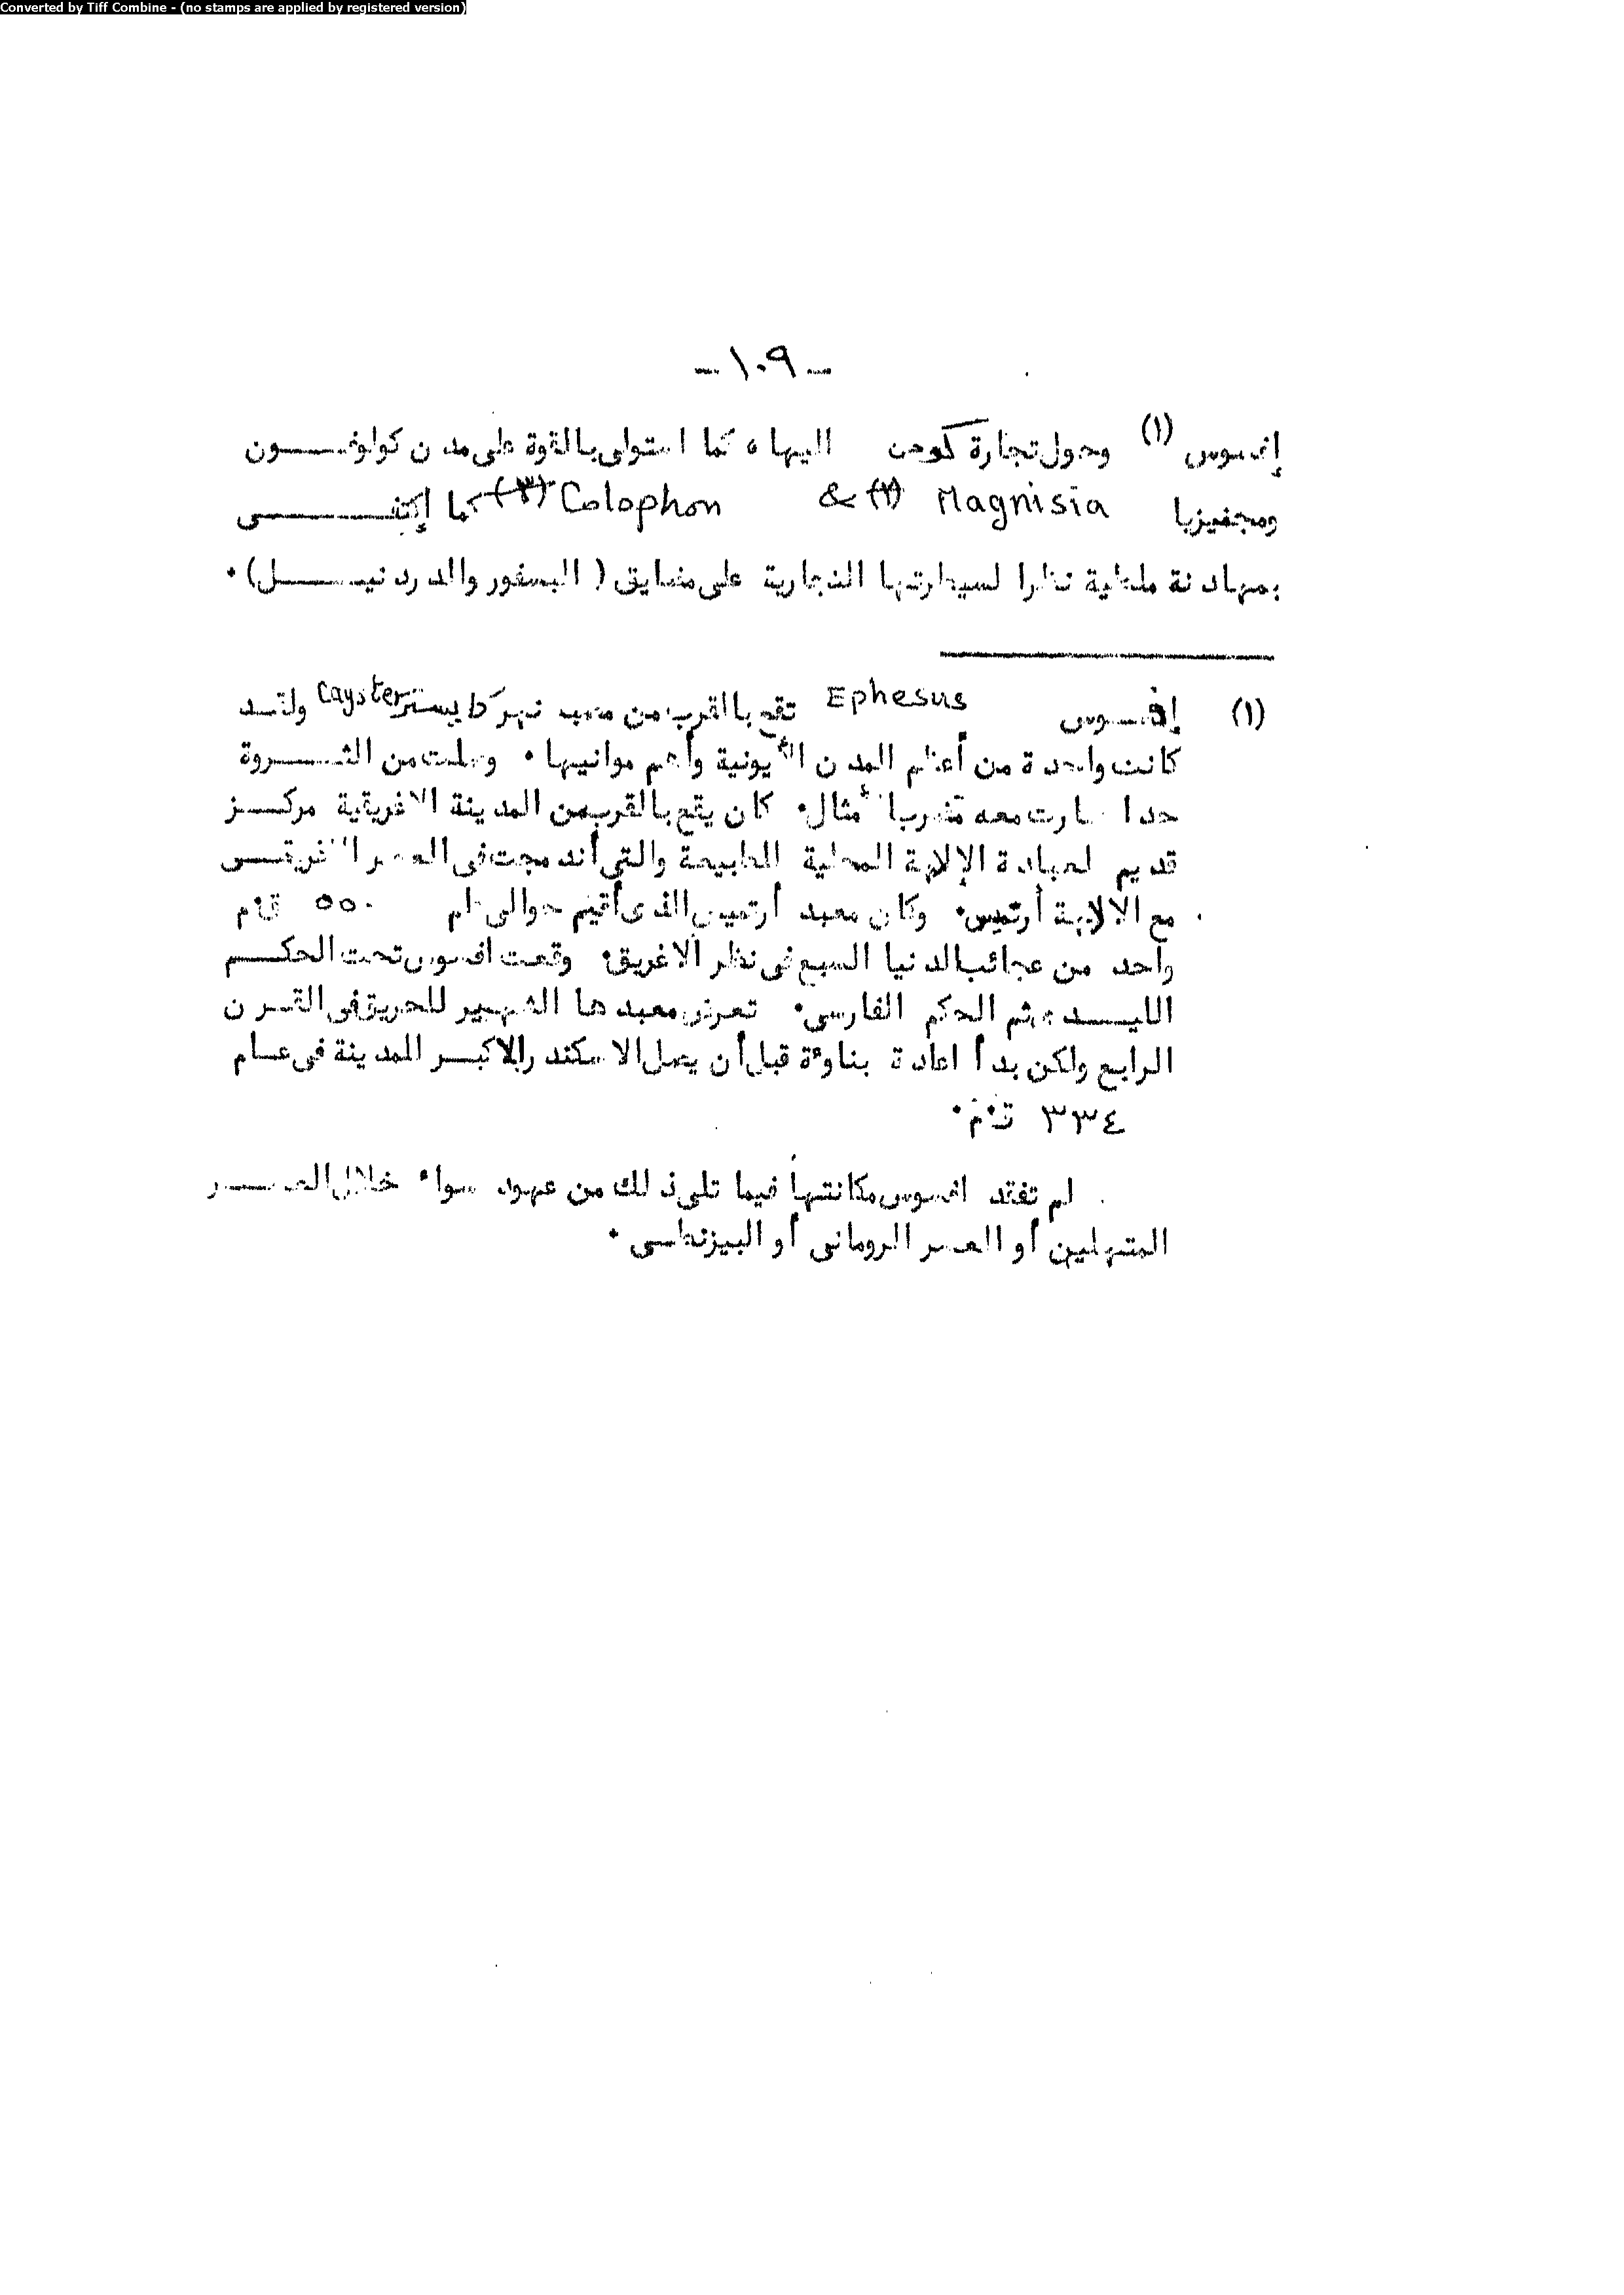 Converted by Tiff Combine - (no stamps are applied by registered version)
- ١٠٩ -
إفسوس (١) وحول تجارة اليها ، كما استولى بالقوة على مدن كولوفون
ومجنيزيا Magnisia (٢) & Colophon (٣) كما إكتفى
بمهادنة ملطية نظرا لسيطرتها التجارية على مضايق ( البسفور والدردنيل ) .
(١) إفسوس Ephesus تقع بالقرب من مصب نهر كايستر Cayster ولقد
كانت واحدة من أعظم المدن الأيونية وأهم موانيها . وصلت من الثروة
حدا صارت معه مضربا أمثال . كان يقع بالقرب من المدينة الاغريقية مركز
قديم لعبادة الإلاهة المحلية للطبيعة والتي أندمجت في العصر الاغريقى
مع الالاهة أرتميس . وكان معبد أرتميس الذى أقيم حوالى عام ٥٥٠ ق.م
واحد من عجائب الدنيا السبع في نظر الاغريق . وقعت افسوس تحت الحكم
الليدى ثم الحكم الفارسى . تعرض معبدها الشهير للحريق فى القرن
الرابع ولكن بدأ اعادة بناؤة قبل أن يصل الاسكندر الاكبر للمدينة فى عام
٣٣٤ ق.م.
لم تفقد افسوس مكانتها فيما تلى ذلك من عهود سواء خلال العصر
المتهلين أو العصر الرومانى أو البيزنطى .